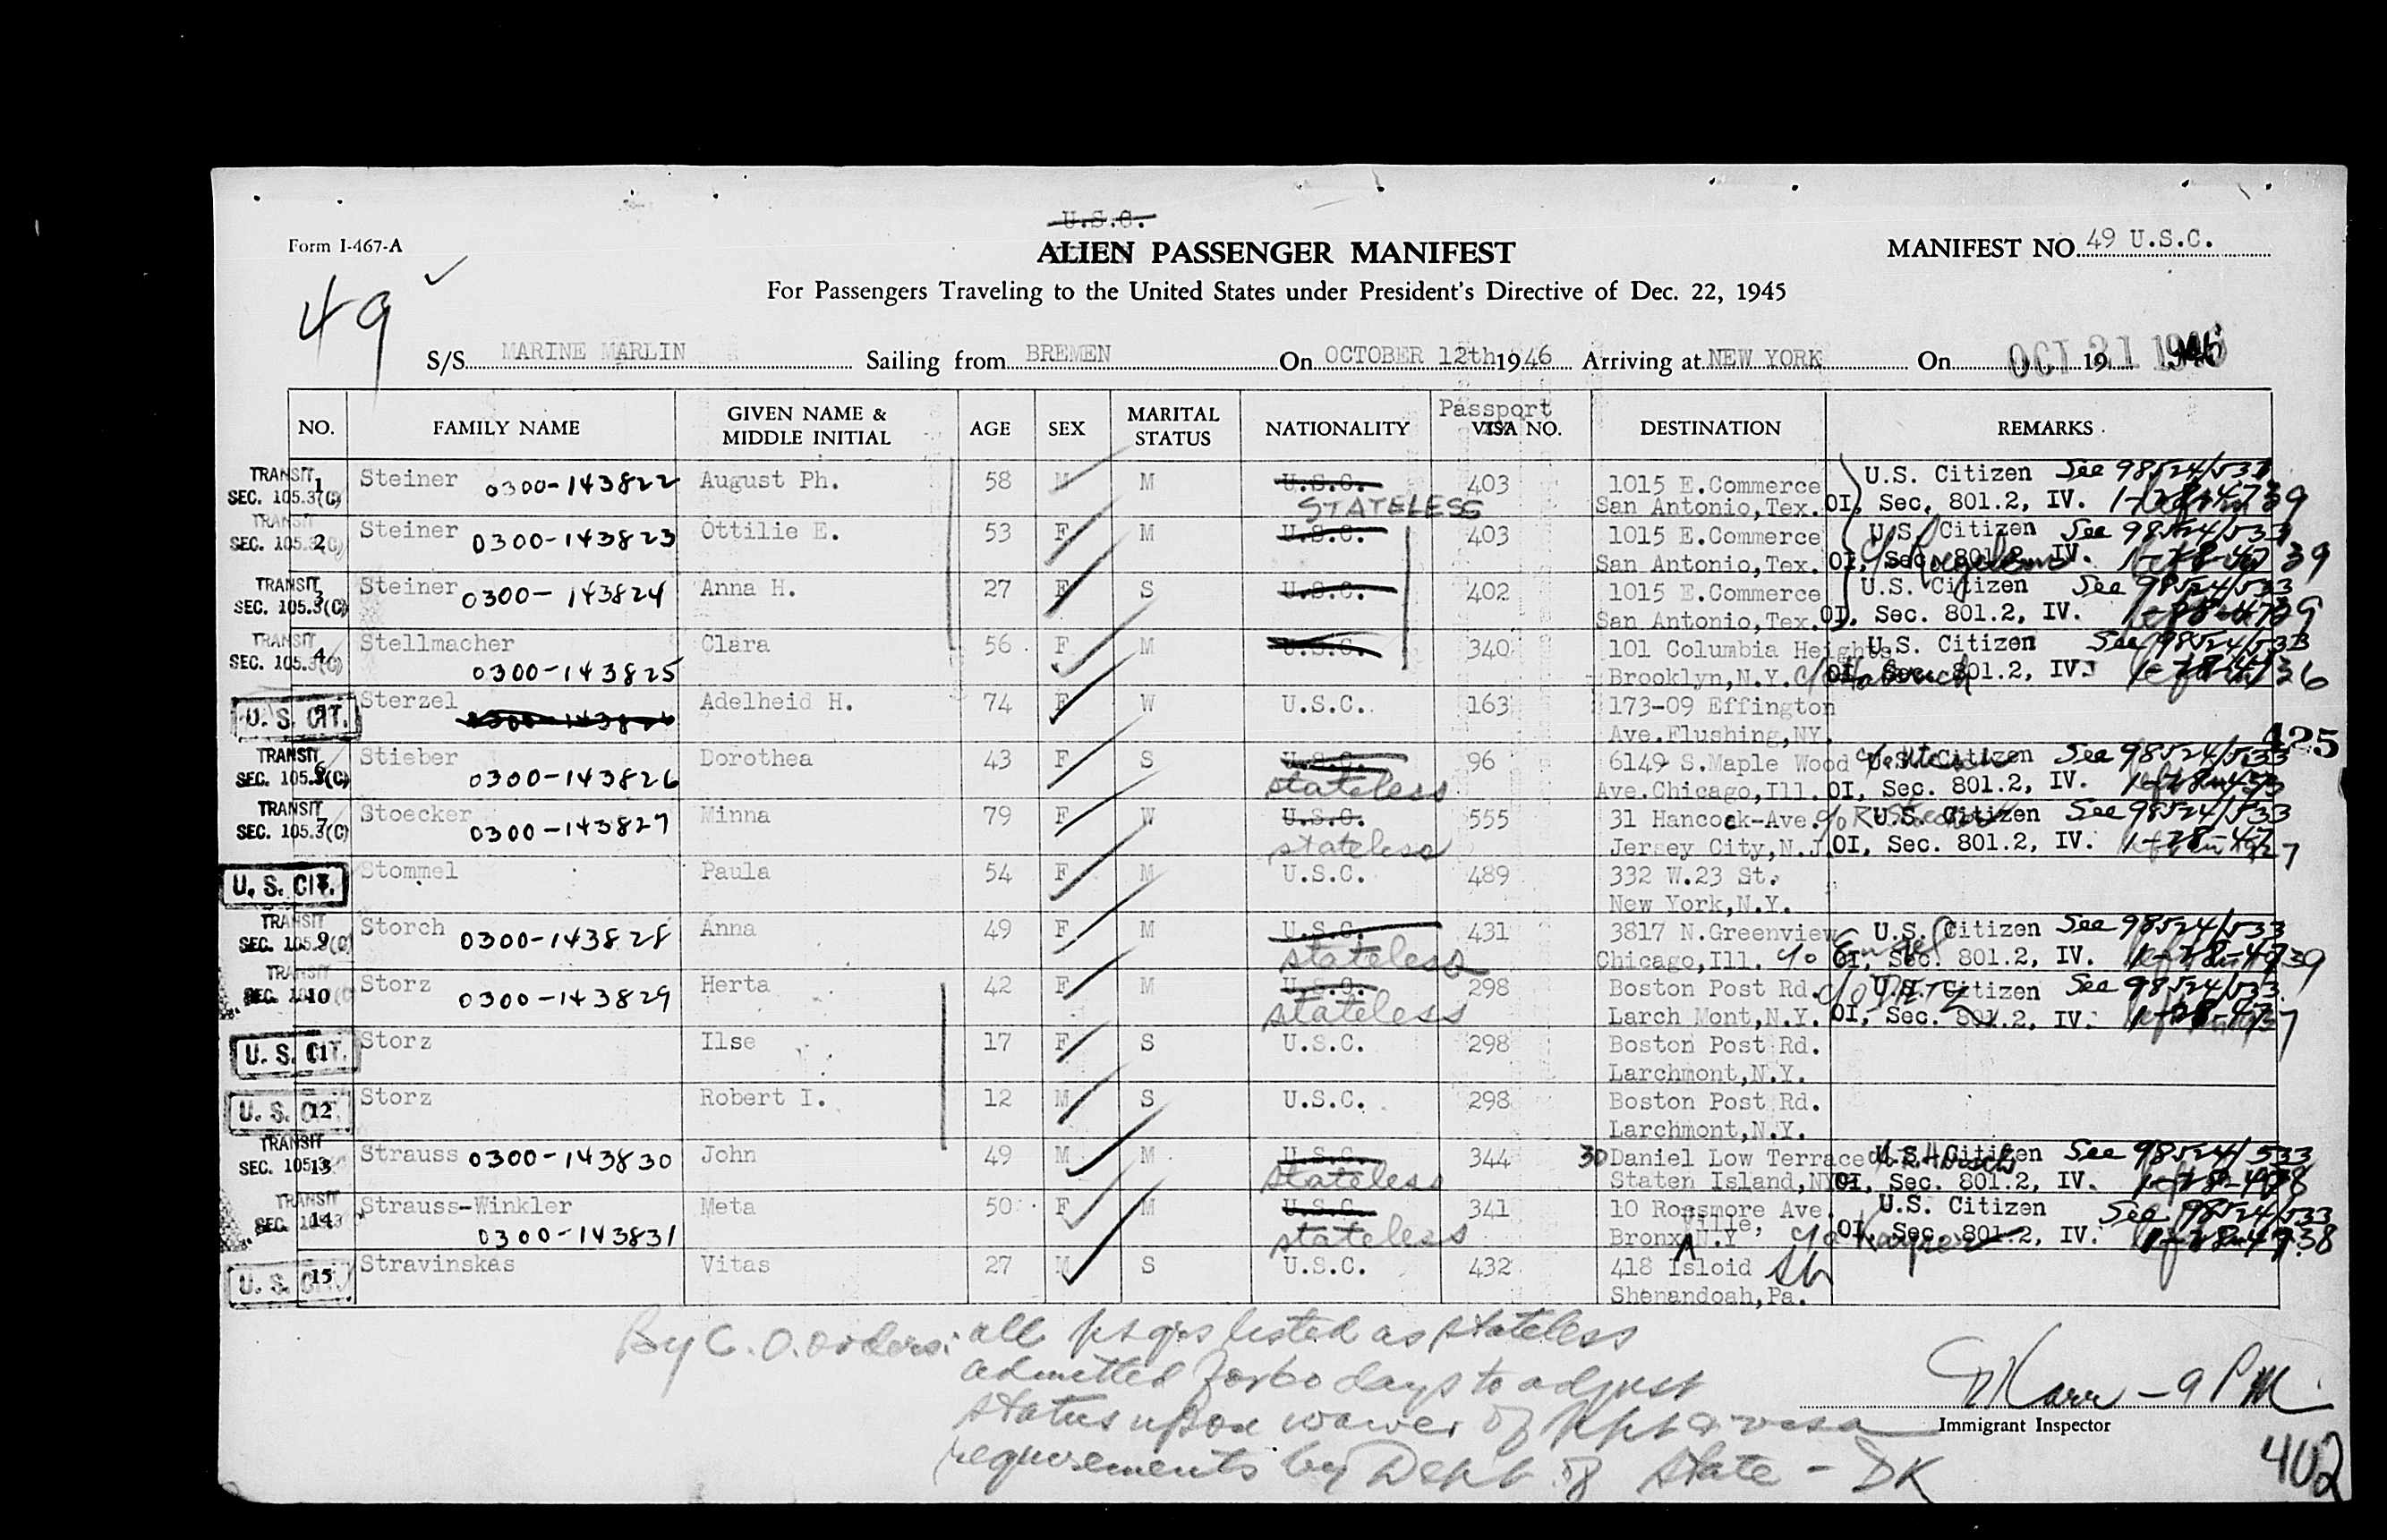 U.S.C.
Form I-467-A
ALIEN PASSENGER MANIFEST
MANIFEST NO. 49 U.S.C.
For Passengers Traveling to the United States under President's Directive of Dec. 22, 1945
49
S/S MARINE MARLIN Sailing from BREMEN On OCTOBER 12th 1946 Arriving at NEW YORK On OCT 21 1946 19
NO. FAMILY NAME GIVEN NAME & MIDDLE INITIAL AGE SEX MARITAL STATUS NATIONALITY Passport VISA NO. DESTINATION REMARKS
TRANSIT 1 Steiner 0300-143822 August Ph. 58 M M U.S.C. 403 1015 E.Commerce U.S. Citizen See 98524/533
SEC. 105.3(C) STATELESS San Antonio,Tex. OI, Sec. 801.2, IV. 1-28-47 39
TRANSIT 2 Steiner 0300-143823 Ottilie E. 53 F M U.S.C. 403 1015 E.Commerce U.S. Citizen See 98524/533
SEC. 105.3(C) San Antonio,Tex. OI, Sec. 801.2, IV. 1-28-47 39
TRANSIT 3 Steiner 0300-143824 Anna H. 27 F S U.S.C. 402 1015 E.Commerce U.S. Citizen See 98524/533
SEC. 105.3(C) San Antonio,Tex. OI, Sec. 801.2, IV. 1-28-47 39
TRANSIT 4 Stellmacher Clara 56 F M U.S.C. 340 101 Columbia Heights U.S. Citizen See 98524/533
SEC. 105.3(C) 0300-143825 Brooklyn,N.Y. OI, Sec. 801.2, IV. 1-28-47 36
U. S. CIT. Sterzel Adelheid H. 74 F W U.S.C. 163 173-09 Effington
Ave.Flushing,NY. 425
TRANSIT 6 Stieber Dorothea 43 F S U.S.C. 96 6149 S.Maple Wood U.S. Citizen See 98524/533
SEC. 105.3(C) 0300-143826 stateless Ave.Chicago,Ill. OI, Sec. 801.2, IV. 1-28-47
TRANSIT 7 Stoecker Minna 79 F W U.S.C. 555 31 Hancock-Ave. U.S. Citizen See 98524/533
SEC. 105.3(C) 0300-143827 stateless Jersey City,N.J. OI, Sec. 801.2, IV. 1-28-47
U. S. CIT. Stommel Paula 54 F M U.S.C. 489 332 W.23 St.
New York,N.Y.
TRANSIT 9 Storch 0300-143828 Anna 49 F M U.S.C. 431 3817 N.Greenview U.S. Citizen See 98524/533
SEC. 105.3(C) stateless Chicago,Ill. c/o OI, Sec. 801.2, IV. 1-28-47 39
TRANSIT 10 Storz 0300-143829 Herta 42 F M U.S.C. 298 Boston Post Rd. U.S. Citizen See 98524/533
SEC. 105.3(C) stateless Larch Mont,N.Y. OI, Sec. 801.2, IV. 1-28-47
U. S. CIT. 11 Storz Ilse 17 F S U.S.C. 298 Boston Post Rd.
Larchmont,N.Y.
U. S. CIT. 12 Storz Robert I. 12 M S U.S.C. 298 Boston Post Rd.
Larchmont,N.Y.
TRANSIT 13 Strauss 0300-143830 John 49 M M U.S.C. 344 30 Daniel Low Terrace U.S. Citizen See 98524/533
SEC. 105.3 stateless Staten Island,NY OI, Sec. 801.2, IV. 1-28-47
TRANSIT 14 Strauss-Winkler Meta 50 F M U.S.C. 341 10 Rossmore Ave. U.S. Citizen See 98524/533
SEC. 105.3 0300-143831 stateless Bronxville, N.Y OI, Sec. 801.2, IV. 1-28-47 38
U. S. CIT. 15 Stravinskas Vitas 27 M S U.S.C. 432 418 Isloid
Shenandoah,Pa.
By C. O. orders: all psgrs listed as stateless
admitted for 60 days to adjust
status upon waiver of ppt & visa
requirements by Dept. of State - DK
DKarr - 9 PM
Immigrant Inspector
402